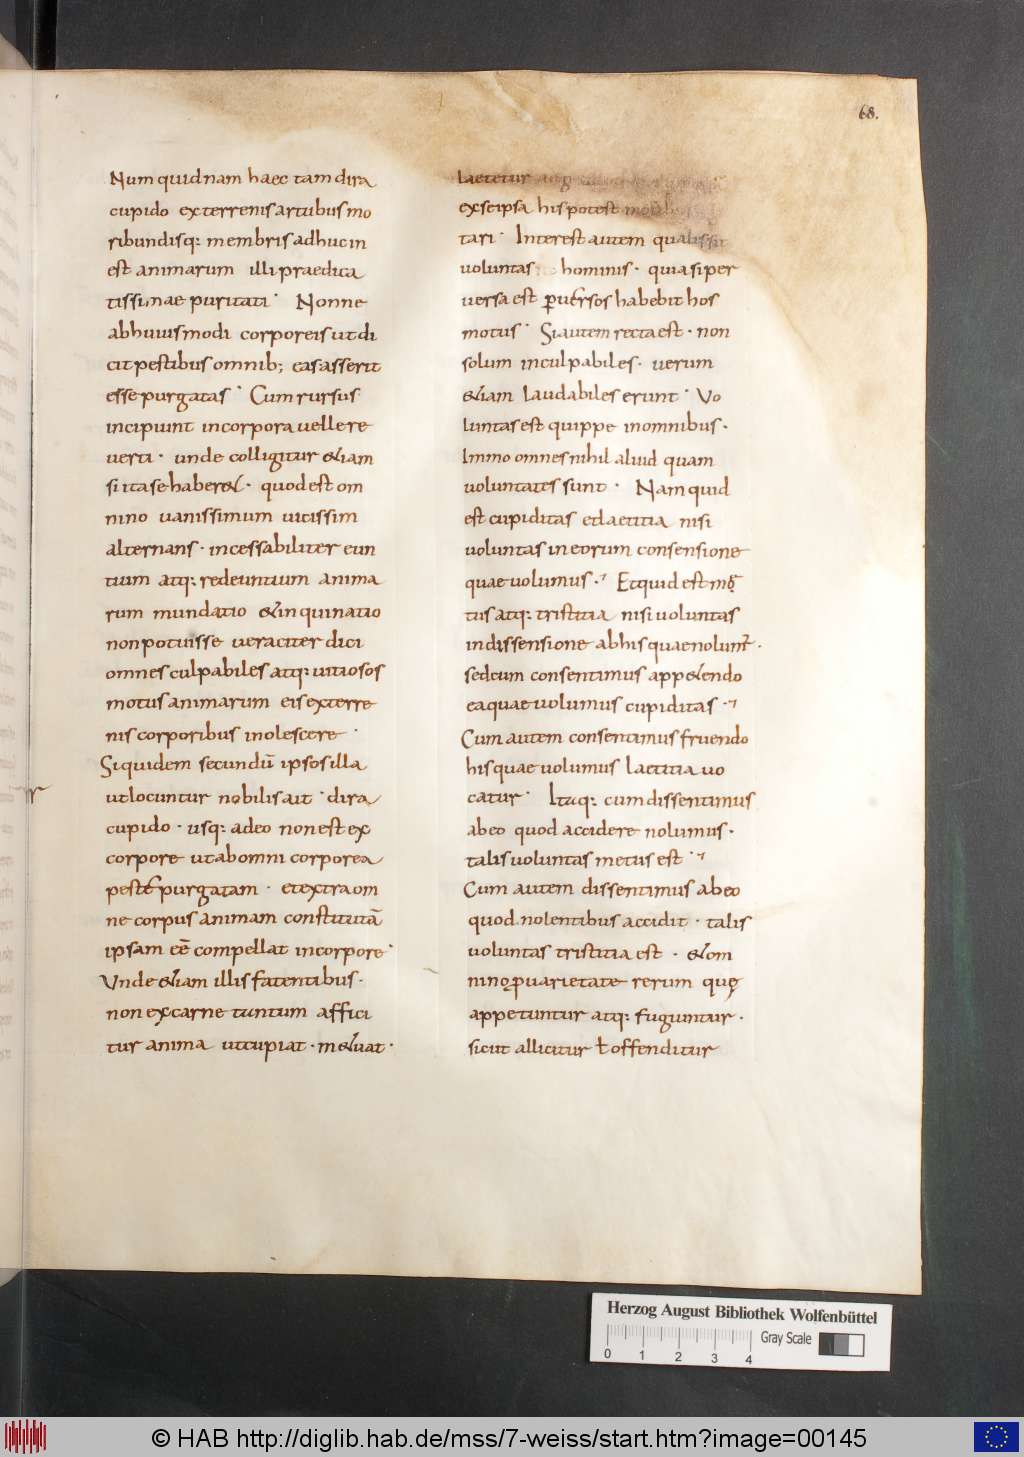 68.
Num quidnam haec tam dira
cupido ex terrenis artubus mo
ribundisq: membris adhuc in
est animarum illi praedica
tissimae puritati· Nonne
abhuiusmodi corporeis ut di
cit pestibus omnib; eas asserit
esse purgatas· Cum rursus
incipiunt in corpora uellere
uerti· unde colligitur etiam
si ita se haberet· quod est om
nino uanissimum uicissim
alternans· incessabiliter eun
tium atq: redeuntium anima
rum mundatio et inquinatio
non potuisse ueraciter dici
omnes culpabiles atq: uitiosos
motus animarum eis ex terre
nis corporibus inolescere·
Siquidem secundū ipsos illa
ut locuntur nobilis ait· dira
cupido· usq: adeo non est ex
corpore ut ab omni corporea
pestē purgatam· et extra om
ne corpus animam constitutā
ipsam eē compellat in corpore·
Unde etiam illis fatentibus·
non ex carne tantum affici
tur anima ut cupiat· metuat·
laetetur
ex seipsa his potest
tari· Interest autem qualis sit
uoluntas hominis· quia si per
uersa est puersos habebit hos
motus· Si autem recta est· non
solum inculpabiles· uerum
etiam laudabiles erunt· Vo
luntas est quippe in omnibus·
Immo omnes nihil aliud quam
uoluntates sunt· Nam quid
est cupiditas et laetitia nisi
uoluntas in eorum consensione
quae uolumus· Et quid est mę
tus atq: tristitia nisi uoluntas
in dissensione ab his quae nolum̄·
sed cum consentimus appetendo
ea quae uolumus cupiditas·
Cum autem consentimus fruendo
his quae uolumus laetitia uo
catur· Itaq: cum dissentimus
ab eo quod accidere nolumus·
talis uoluntas metus est·
Cum autem dissentimus ab eo
quod nolentibus accidit· talis
uoluntas tristitia est· et om
nino puarietate rerum quę
appetuntur atq: fuguntur·
sicut allicitur ł offenditur
Herzog August Bibliothek Wolfenbüttel
Gray Scale
0 1 2 3 4
© HAB http://diglib.hab.de/mss/7-weiss/start.htm?image=00145